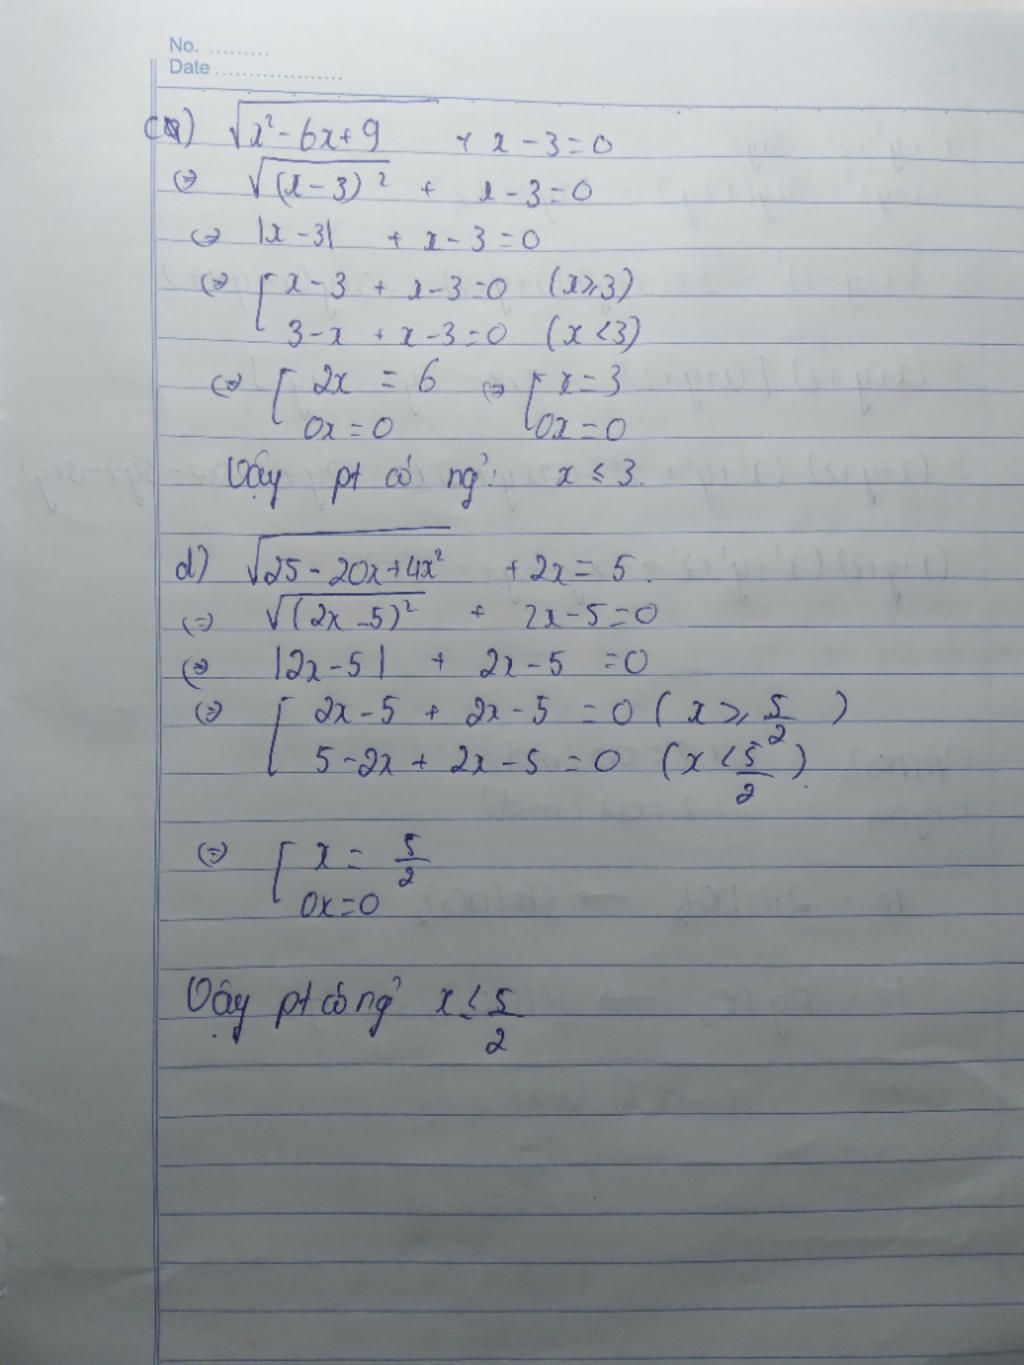 No. .........
Date ...................
c) √(x² - 6x + 9) + x - 3 = 0
⇔ √((x - 3)²) + x - 3 = 0
⇔ |x - 3| + x - 3 = 0
⇔ [ x - 3 + x - 3 = 0 (x ≥ 3)
3 - x + x - 3 = 0 (x < 3)
⇔ [ 2x = 6 ⇔ [ x = 3
0x = 0 0x = 0
Vậy pt có ng⁰: x ≤ 3.
d) √(25 - 20x + 4x²) + 2x = 5.
⇔ √((2x - 5)²) + 2x - 5 = 0
⇔ |2x - 5| + 2x - 5 = 0
⇔ [ 2x - 5 + 2x - 5 = 0 (x ≥ 5/2)
5 - 2x + 2x - 5 = 0 (x < 5/2).
⇔ [ x = 5/2
0x = 0
Vậy pt có ng⁰ x ≤ 5/2